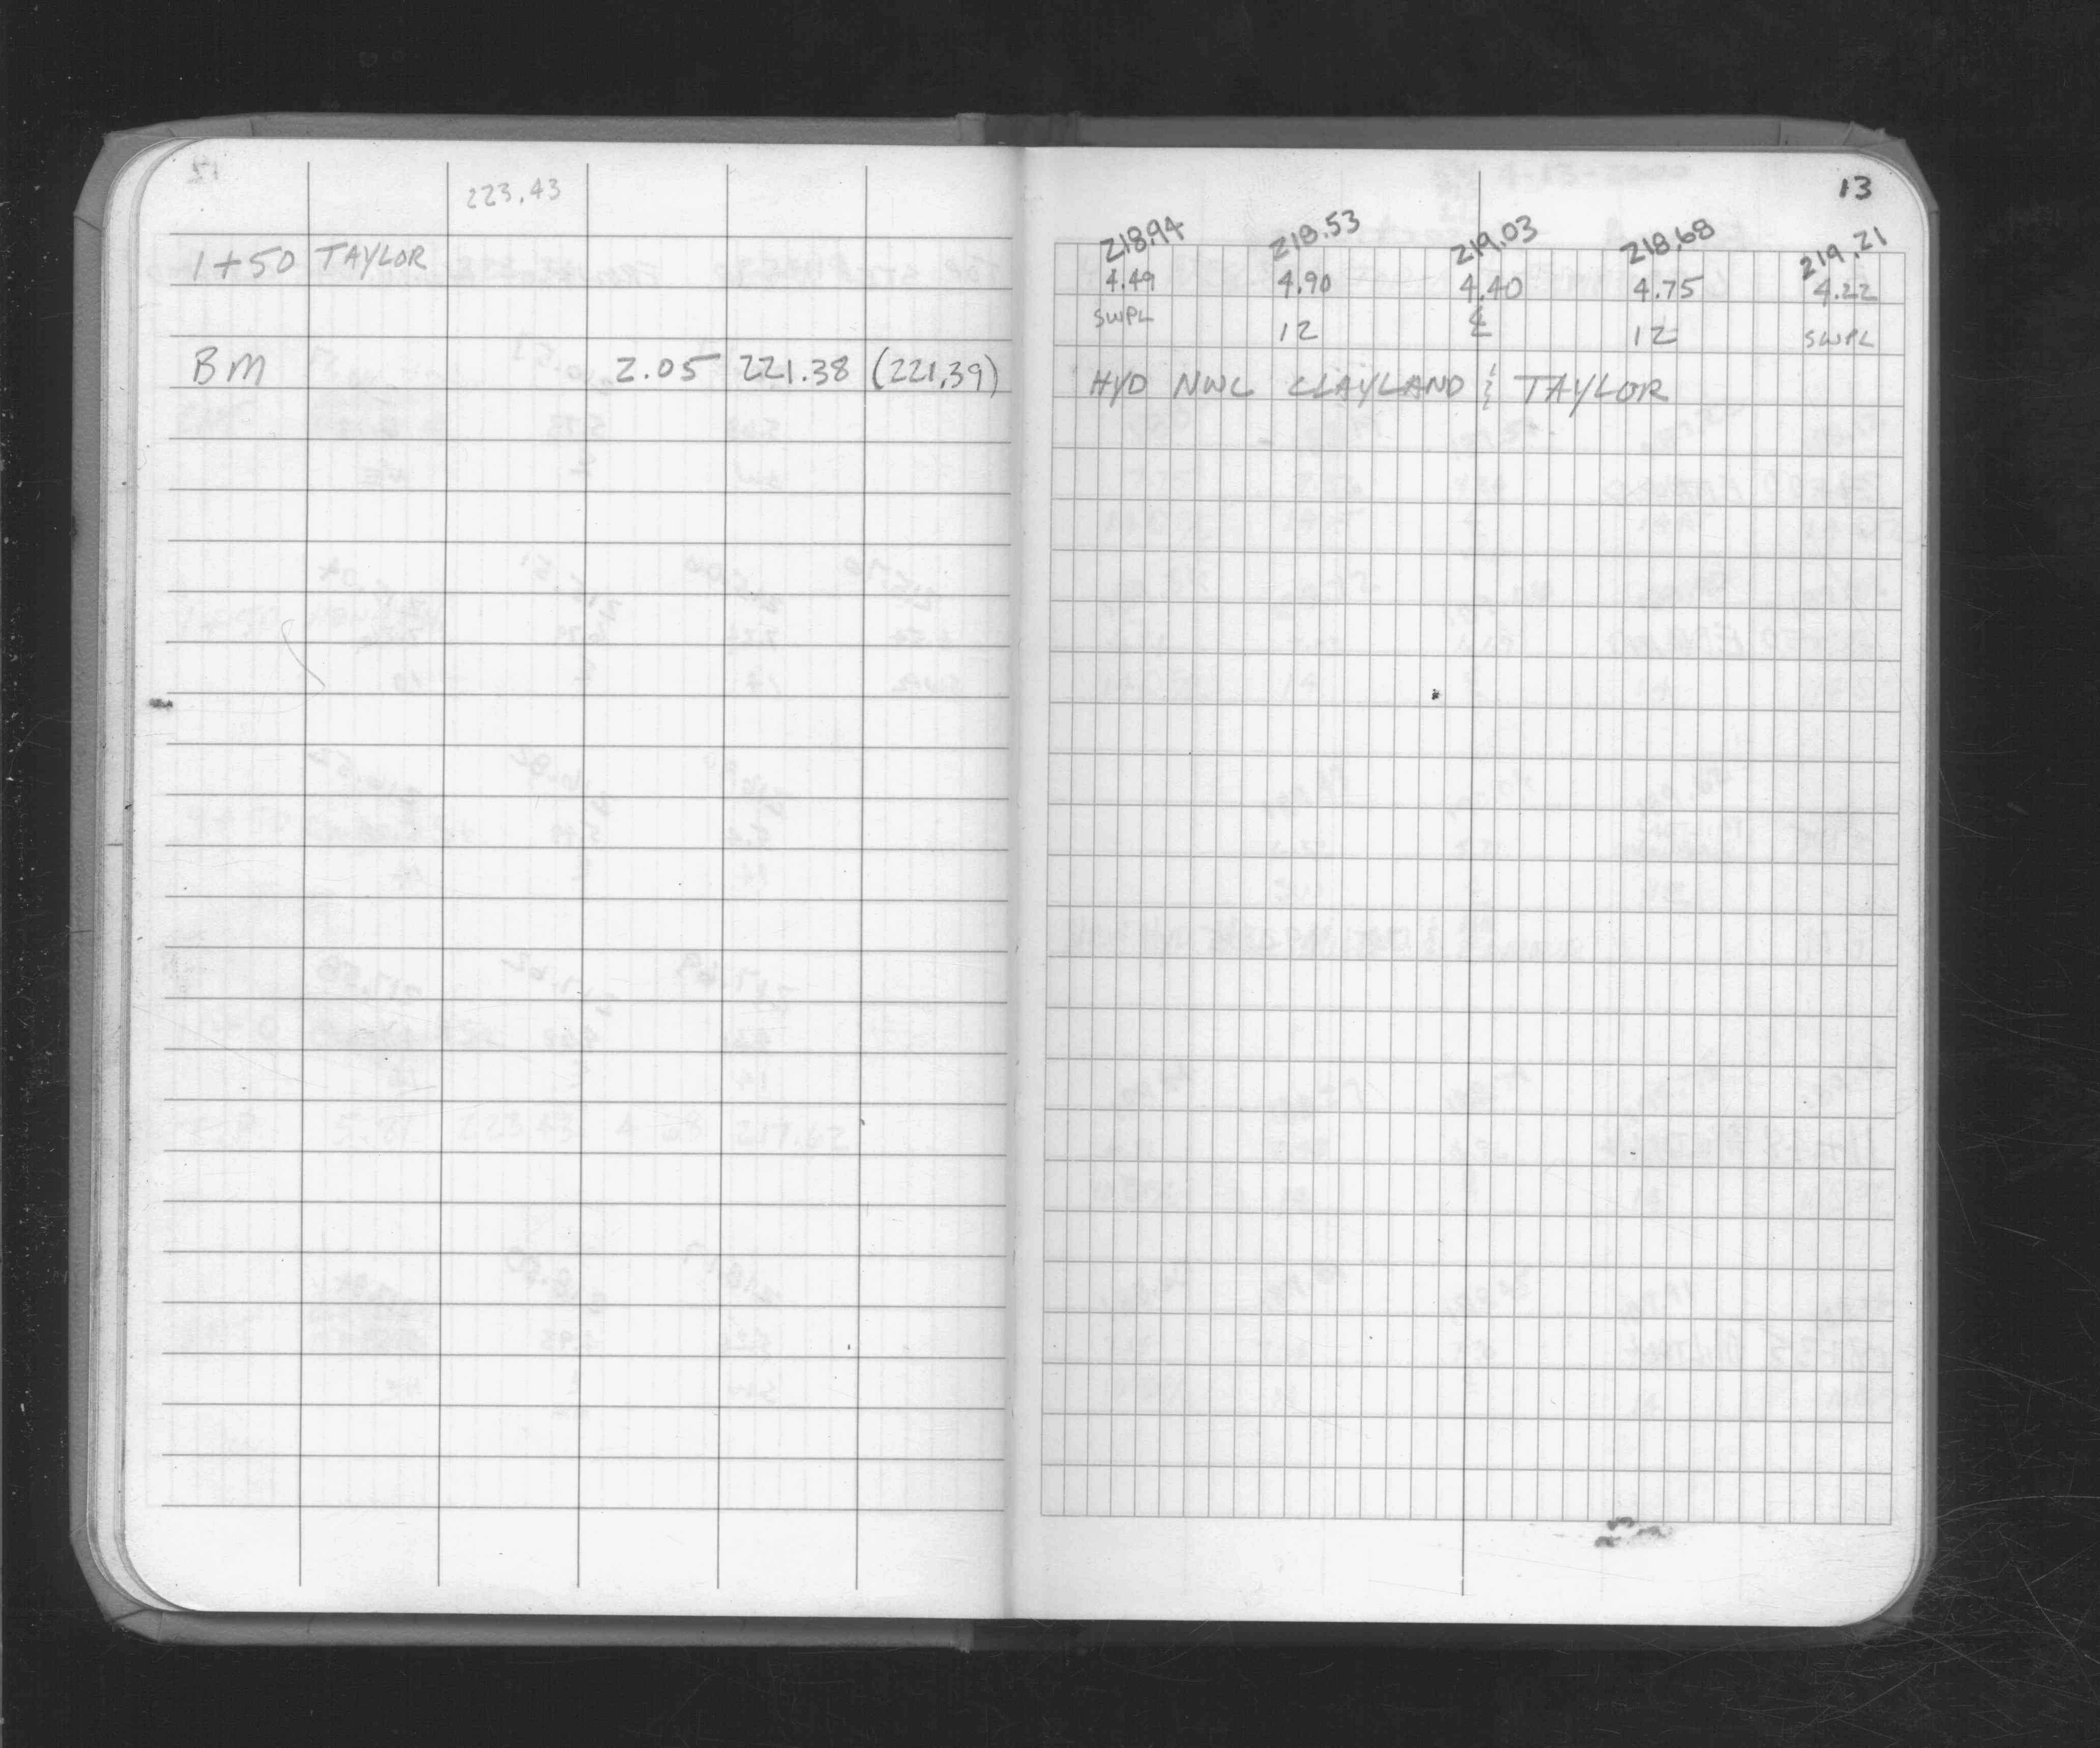 223.43
1+50 TAYLOR
BM 2.05 221.38 (221.39)
13
218.94 218.53 219.03 218.68 219.21
4.49 4.90 4.40 4.75 4.22
SWPL 12 ℄ 12 SWPL
HYD NWC CLAYLAND & TAYLOR